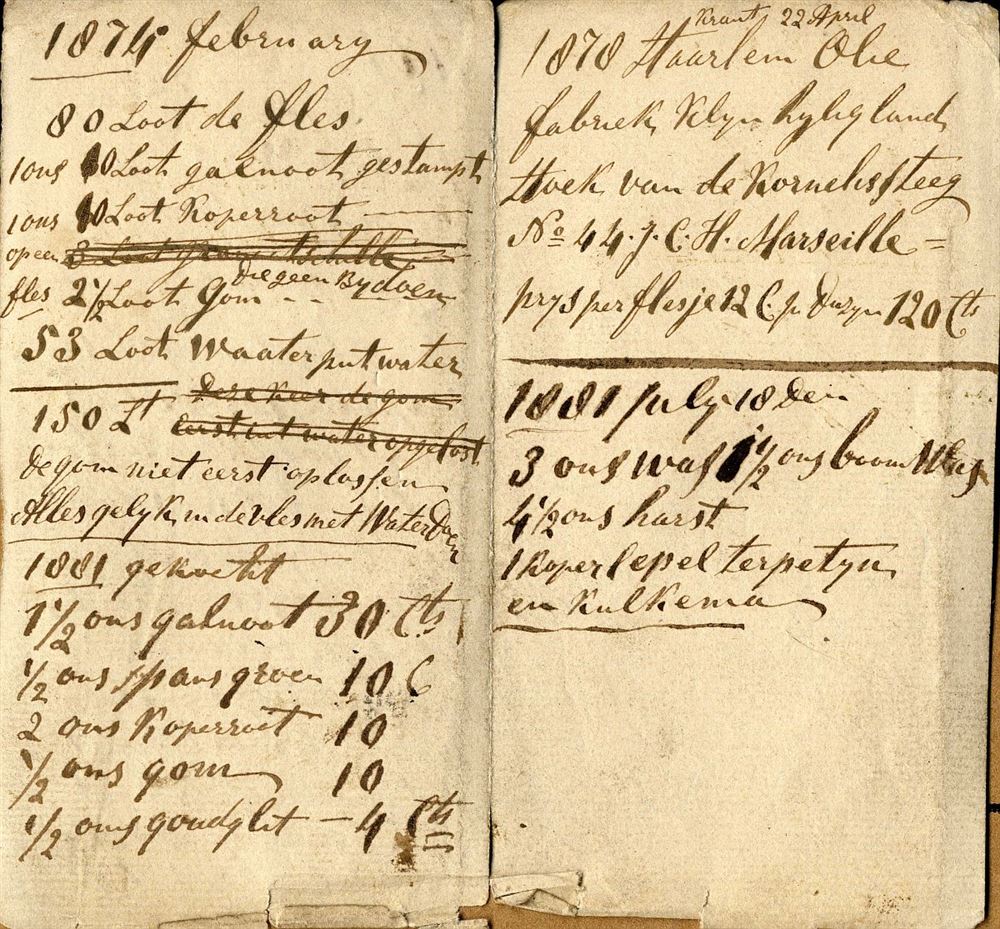 1874 february
80 Loot de fles
1 ons 10 Loot galnoot gestampt
1 ons 10 Loot Koperroot
op een 3 Loot
die geen Bydoen
fles 2 1/2 Loot Gom - -
53 Loot Waater putwater
150 Lt Deze keer de gom
Eerst int water opgelost
de gom niet eerst oplossen
Alles gelyk in de vles met Water Doen
1881 gekocht
1 1/2 ons galnoot 30 Cts
1/2 ons spans groen 10 C
2 ons Koperroot 10
1/2 ons gom 10
1/2 ons goudglit - 4 Cts
Krant 22 April
1878 Haarlem Olie
fabriek Klyn hylig land
Hoek van de Kornelis steeg
No 44. J. C. H. Marseille =
prys per flesje 12 C. p Duzyn 120 Cts
1881 July 18 Den
3 ons was 1 1/2 ons boom Was
4 1/2 ons harst
1 Koper lepel terpetyn
en Kulkema